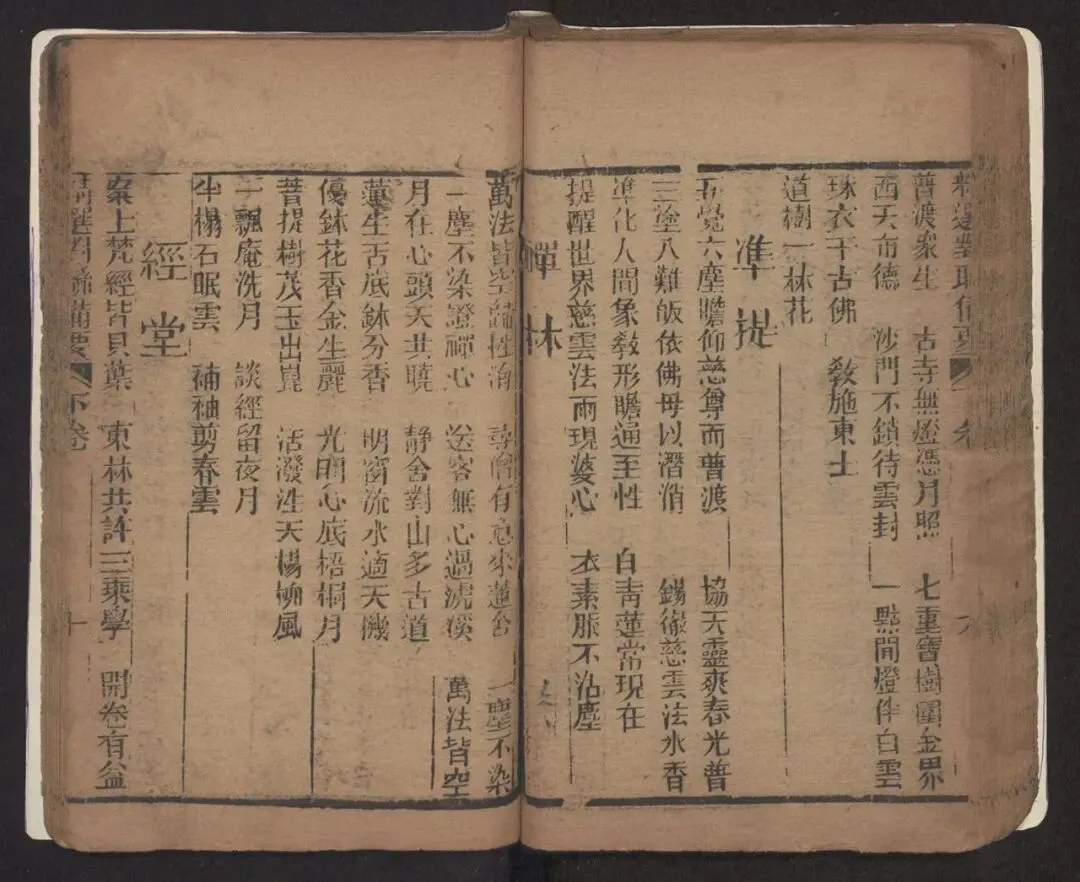 精選對聯備要 卷
普渡衆生 古寺無燈憑月照 七重寶樹圍金界
西天布德 沙門不鎖待雲封 一點閒燈伴白雲
珠衣千古佛 敎施東土
道樹一林花
凖提
五覺六塵瞻仰慈尊而普渡 協天靈爽春光普
三塗八難皈依佛母以潛消 錫徹慈雲法水香
凖化人間象敎形瞻通至性 白靑蓮常現在
提醒世界慈雲法雨現婆心 衣素脤不沾塵
禪林
萬法皆空 尋僧有意來蓮舍 一塵不染
一塵不染證禪心 送客無心過滮溪 萬法皆空
月在心頭天共曉 靜舍對山多古道
蓮生舌底鉢分香 明窗流水適天機
優鉢花香金生麗 光明心底梧桐月
菩提樹茂玉出崑 活潑性天楊柳風
一瓢庵洗月 談經留夜月
半榻石眠雲 補衲剪春雲
經堂
案上梵經皆貝葉 東林共許三乘學 開卷有益
精選對聯備要 下卷 十